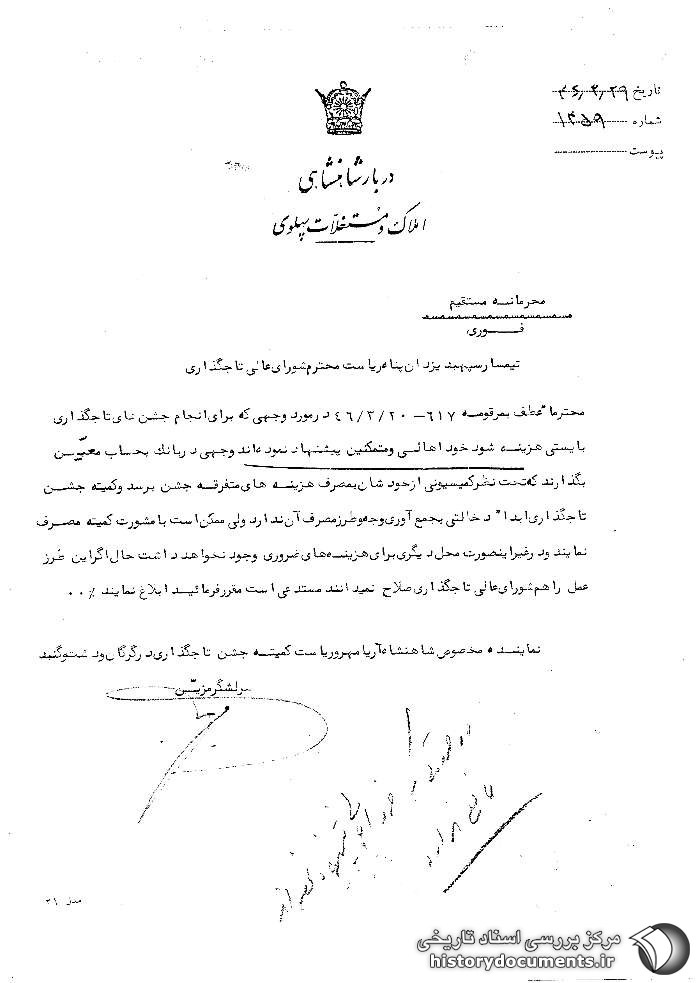 تاریخ ۴۶/۳/۲۹
شماره ۱۴۵۹
پیوست
دربار شاهنشاهی
املاک و مستغلات پهلوی
محرمانه مستقیم
فوری
تیمسار سپهبد یزدان پناه ریاست محترم شورای عالی تاجگذاری
محترما" عطف بمرقومه ۶۱۷- ۴۶/۳/۲۰ در مورد وجهی که برای انجام جشن های تاجگذاری
بایستی هزینه شود خود اهالی و متمکنین پیشنهاد نموده‌اند وجهی در بانک بحساب معیّن
بگذارند که تحت نظر کمیسیونی از خودشان بمصرف هزینه های متفرقه جشن برسد و کمیته جشن
تاجگذاری ابدا" دخالتی بجمع آوری وجه و طرز مصرف آن ندارد ولی ممکن است با مشورت کمیته مصرف
نمایند و در غیر اینصورت محل دیگری برای هزینه‌های ضروری وجود نخواهد داشت حال اگر این طرز
عمل را هم شورای عالی تاجگذاری صلاح نمیدانند مستدعی است مقرر فرمائید ابلاغ نمایند ٪۰۰
نماینده مخصوص شاهنشاه آریامهر و ریاست کمیته جشن تاجگذاری در گرگان و دشت و گنبد
سرلشگر مزیّن
مدل ۳۱
مرکز بررسی اسناد تاریخی
historydocuments.ir